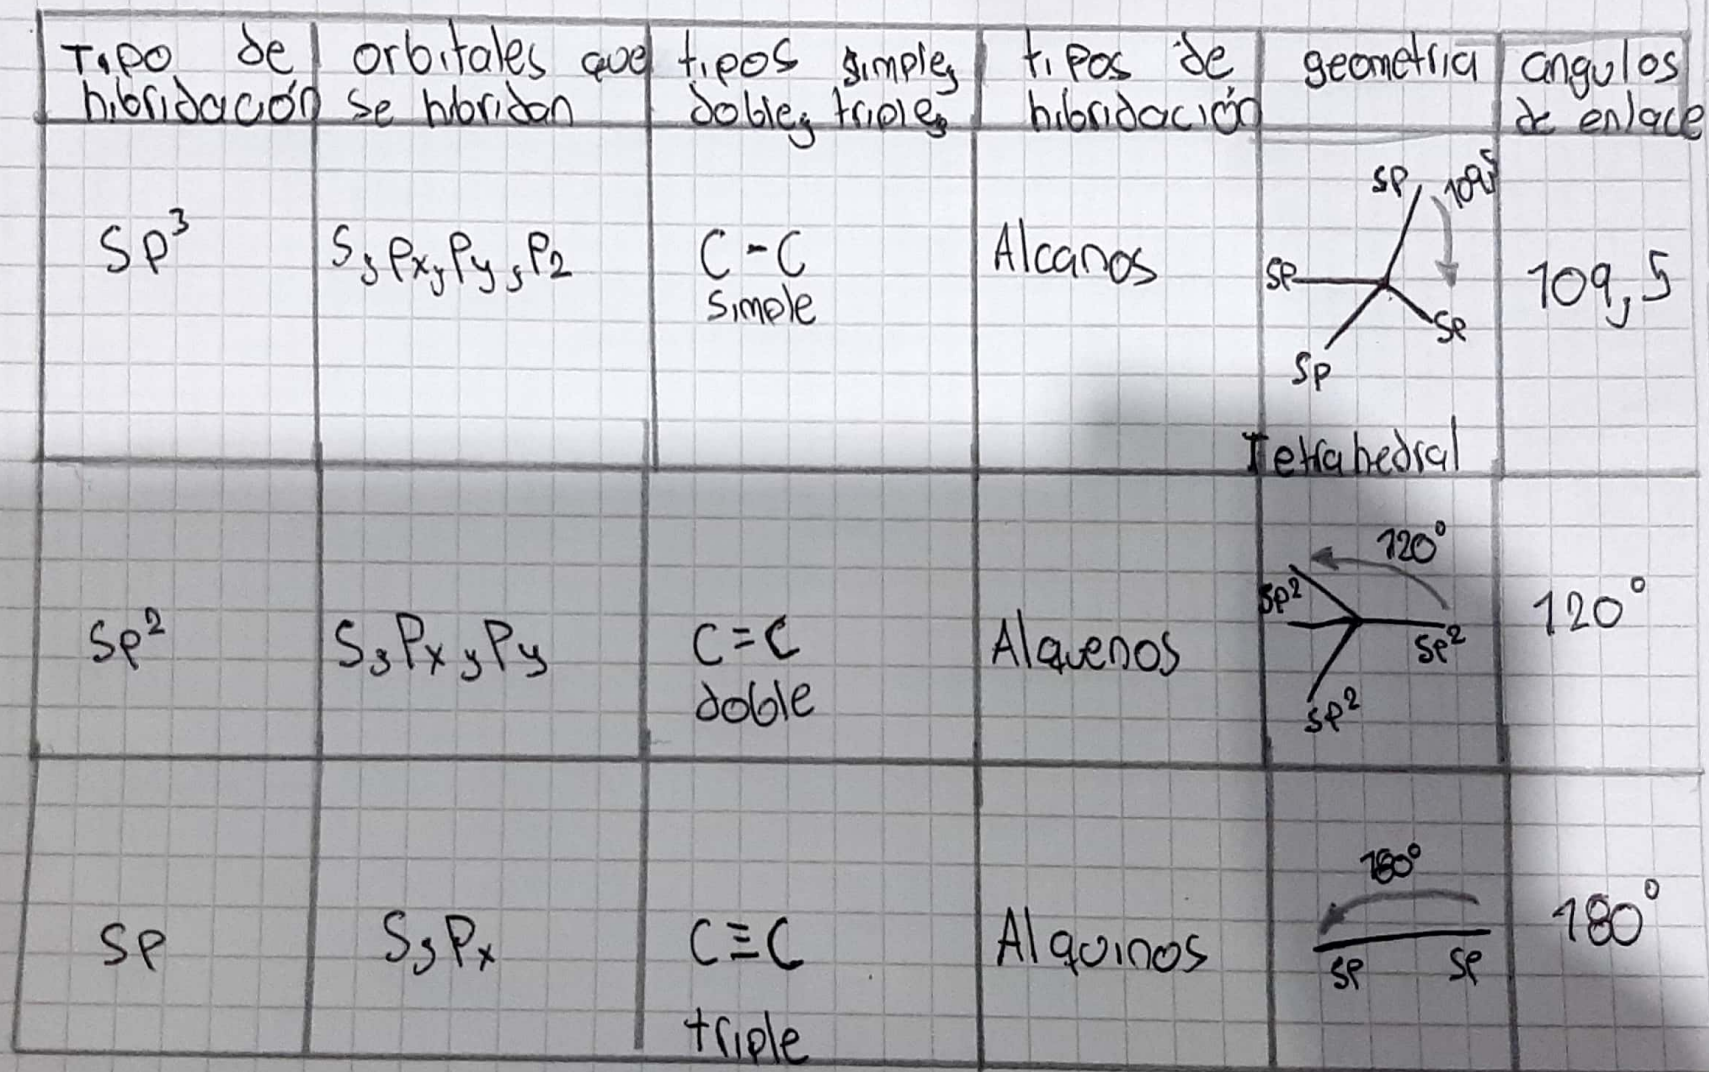 Tipo de hibridación
orbitales que se hibridan
tipos simples, dobles, triples
tipos de hibridación
geometria
angulos de enlace
Sp³
S, Px, Py, P2
C-C
simple
Alcanos
SP
109,5
SP
SP
SP
Tetrahedral
109,5
Sp²
S, Px, Py
C=C
doble
Alquenos
120°
Sp²
Sp²
Sp²
120°
Sp
S, Px
C≡C
triple
Alquinos
180°
SP
SP
180°